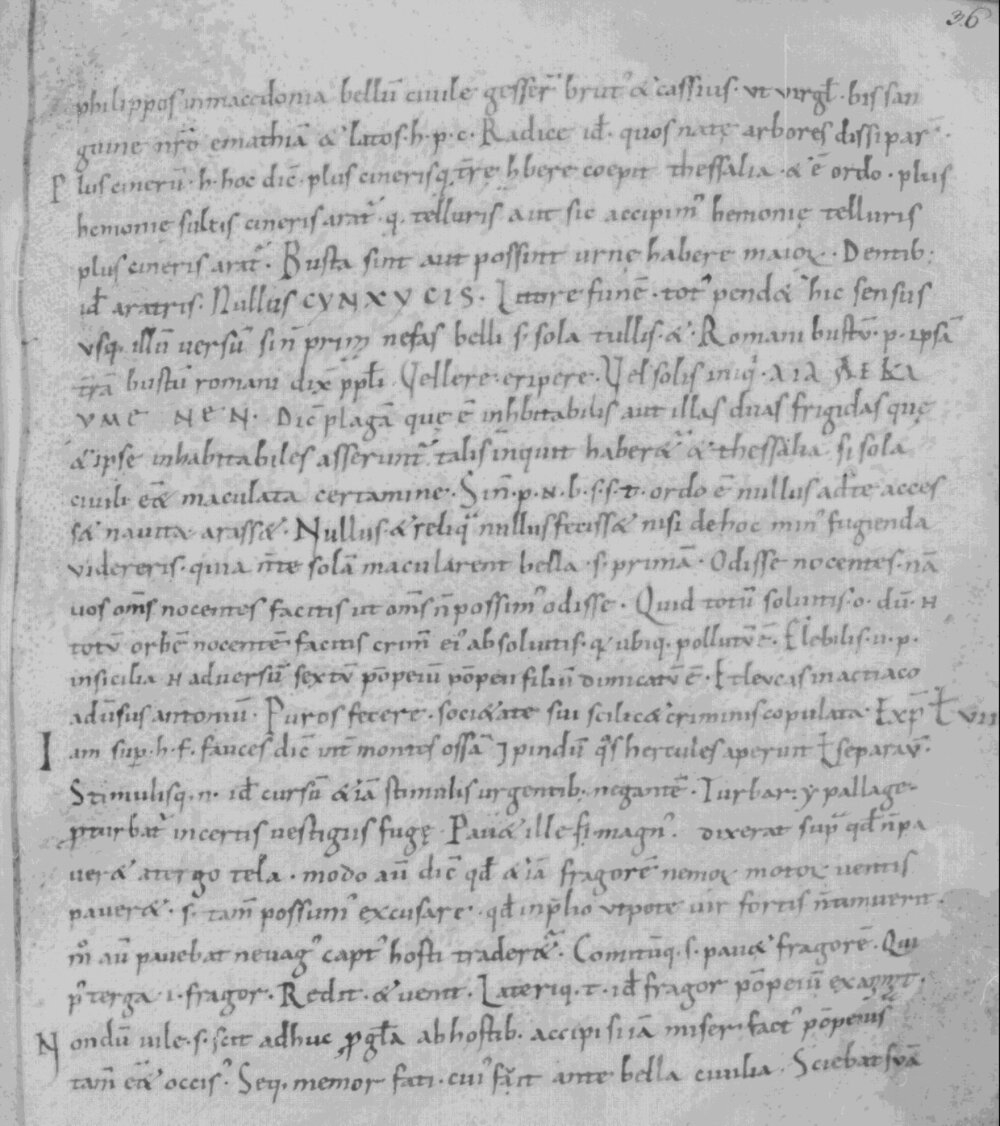 36
philippos inmacedonia bellū ciuile gesser̄ brut᾽ & cassius · ut uirgł · bis san
guine nr̄o emathiā & latos · h · p · c · Radice id̄ · quos natę arbores dissipar̄ ·
Plus cinerū · h · hoc dic̄ · plus cineris q̨ tr̄ę hbere coepit thessalia · & ē ordo · plus
hemonię sulcis cineris arat᾽ · q̨ · telluris aut sic accipim᾽ hemonię telluris
plus cineris arat᾽ · Busta sint aut possint urnę habere maioꝝ · Dentib;
id̄ aratris · Nullus CYNXYCIS · Littore funē · tot᾽ pend& hic sensus
usq · illū uersū si n̄ prim nefas belli · s · sola tullis · & · Romani bustū · p · ipsā
tr̄ā bustū romani dix̄ ppłi · Vellere · eripere · Vel solis iniq᾽ · ΑΙΑ ΑΕΚΑ
VME NEN · Dic̄ plagā quę ē inhbitabilis aut illas duas frigidas quę
& ipse inhabitabiles asserunt᾽ talis inquit haber& & thessalia si sola
ciuili e& maculata certamine · Sin̄ · p · N · b · s · s · t · ordo ē nullus ad te acces
s& nauita arass& · Nullus & reliq̄ nullus feciss& nisi de hoc min᾽ fugienda
videreris · quia n̄ te solā macularent bella · s · primā · Odisse nocentes · nā
uos om̄s nocentes facitis ut om̄s n̄ possim᾽ odisse · Quid totū soluitis · o · dū · N
totū orbē nocentē facitis crim̄ ei᾽ absoluitis · q ubiq · pollutū ē · Flebilis · u · p ·
insicilia N aduersū sextū pōpeiū pōpeii filiū dimicatū ē · Et leucas in actiaco
adūsus antoniū · Puros fecere · soci&ate sui scilic& criminis copulata · Exp̄ Ł VII
Iam sup̄ · h · f · fauces dic̄ int̄ montes ossā ⁊ pindū q᾽s hercules aperuit ł separauᵗ ·
Stimulisq · n · id̄ cursū & iā stimulis urgentib; negantē · Turbat : ypallage ·
ꝓturbat᾽ incertis uestigiis fugę · Pau& ille fı · magn᾽ · dixerat sup̄ qd̄ n̄ pa
uer& atergo tela · modo aū dic̄ qd̄ & iā fragorē nemoꝝ motoꝝ uentis
pauer& · s · tam̄ possum᾽ excusare · qd̄ inp̄lio utpote uir fortis n̄ timuerit ·
m᾽ aū pauebat ne uag᾽ capt᾽ hosti trader& · Comitūq · s · pau& fragorē · Qui
p᾽ terga · i · fragor · Redit · & uenit · Lateriq · t · id̄ fragor pōpeiū exagit̄ ·
Nondū uile · s · scit adhuc p̄ gła ab hostib; accipi si iā miser · fact᾽ pōpeius
tam̄ e& occis᾽ · Seq · memor fati · cui᾽ facit ante bella ciuilia · Sciebat suā